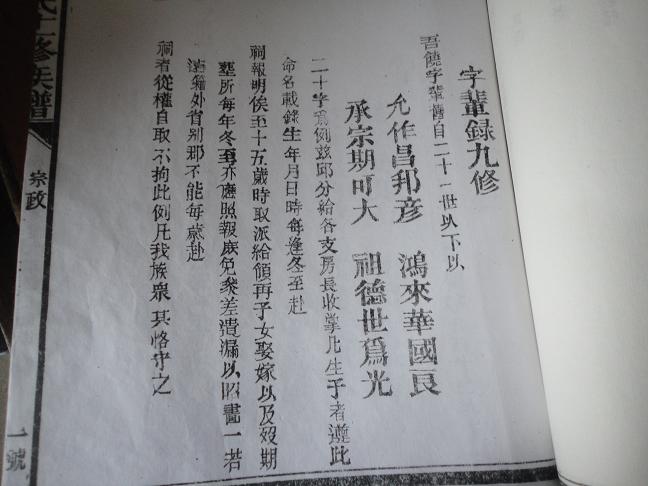 字輩錄九修
吾饒字輩舊自二十一世以下以
允作昌邦彥 鴻來華國良
承宗期可大 祖德世爲光
二十字爲例茲邱分給各支房長收掌凡生子者遵此
命名載錄生年月日時每逢冬至赴
祠報明俟至十五歲時取派給領再子女娶嫁以及歿期
塟所每年冬至亦應照報庶免叅差遺漏以昭畫一若
遠籍外省别郡不能每歲赴
祠者從權自取不拘此例凡我族衆其恪守之
氏七修族譜
宗政
一號